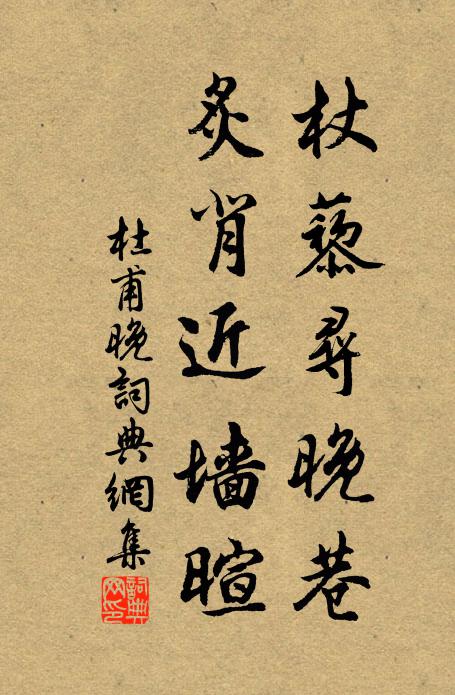 杖藜尋晚巷
炙背近墙暄
杜甫晚詞典網集
詞典网印